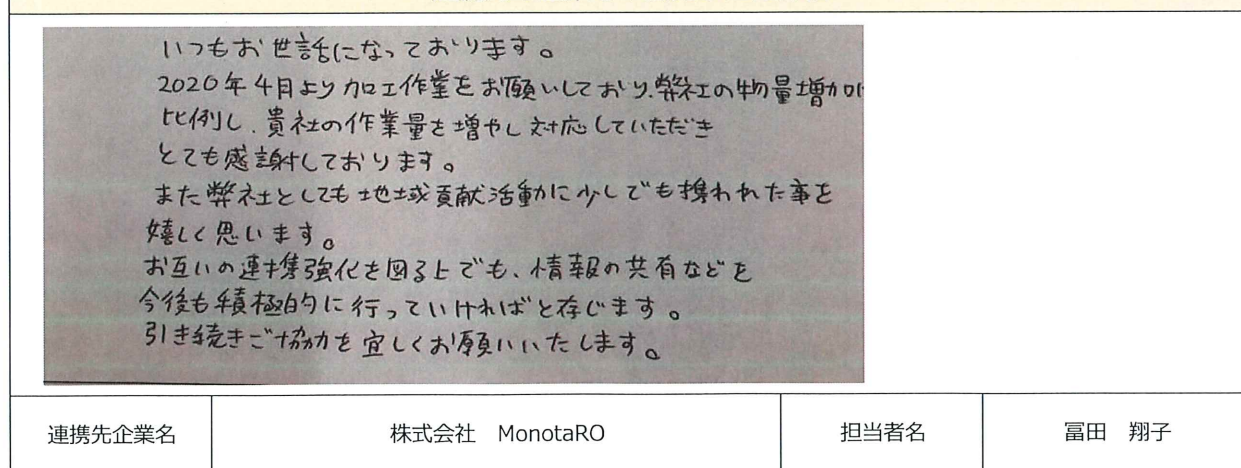 いつもお世話になっております。
2020年4月より加工作業をお願いしており、弊社の物量増加に
比例し、貴社の作業量を増やし対応していただき
とても感謝しております。
また弊社としても地域貢献活動に少しでも携われた事を
嬉しく思います。
お互いの連携強化を図る上でも、情報の共有などを
今後も積極的に行っていければと存じます。
引き続きご協力を宜しくお願いいたします。
連携先企業名 株式会社 MonotaRO 担当者名 冨田 翔子